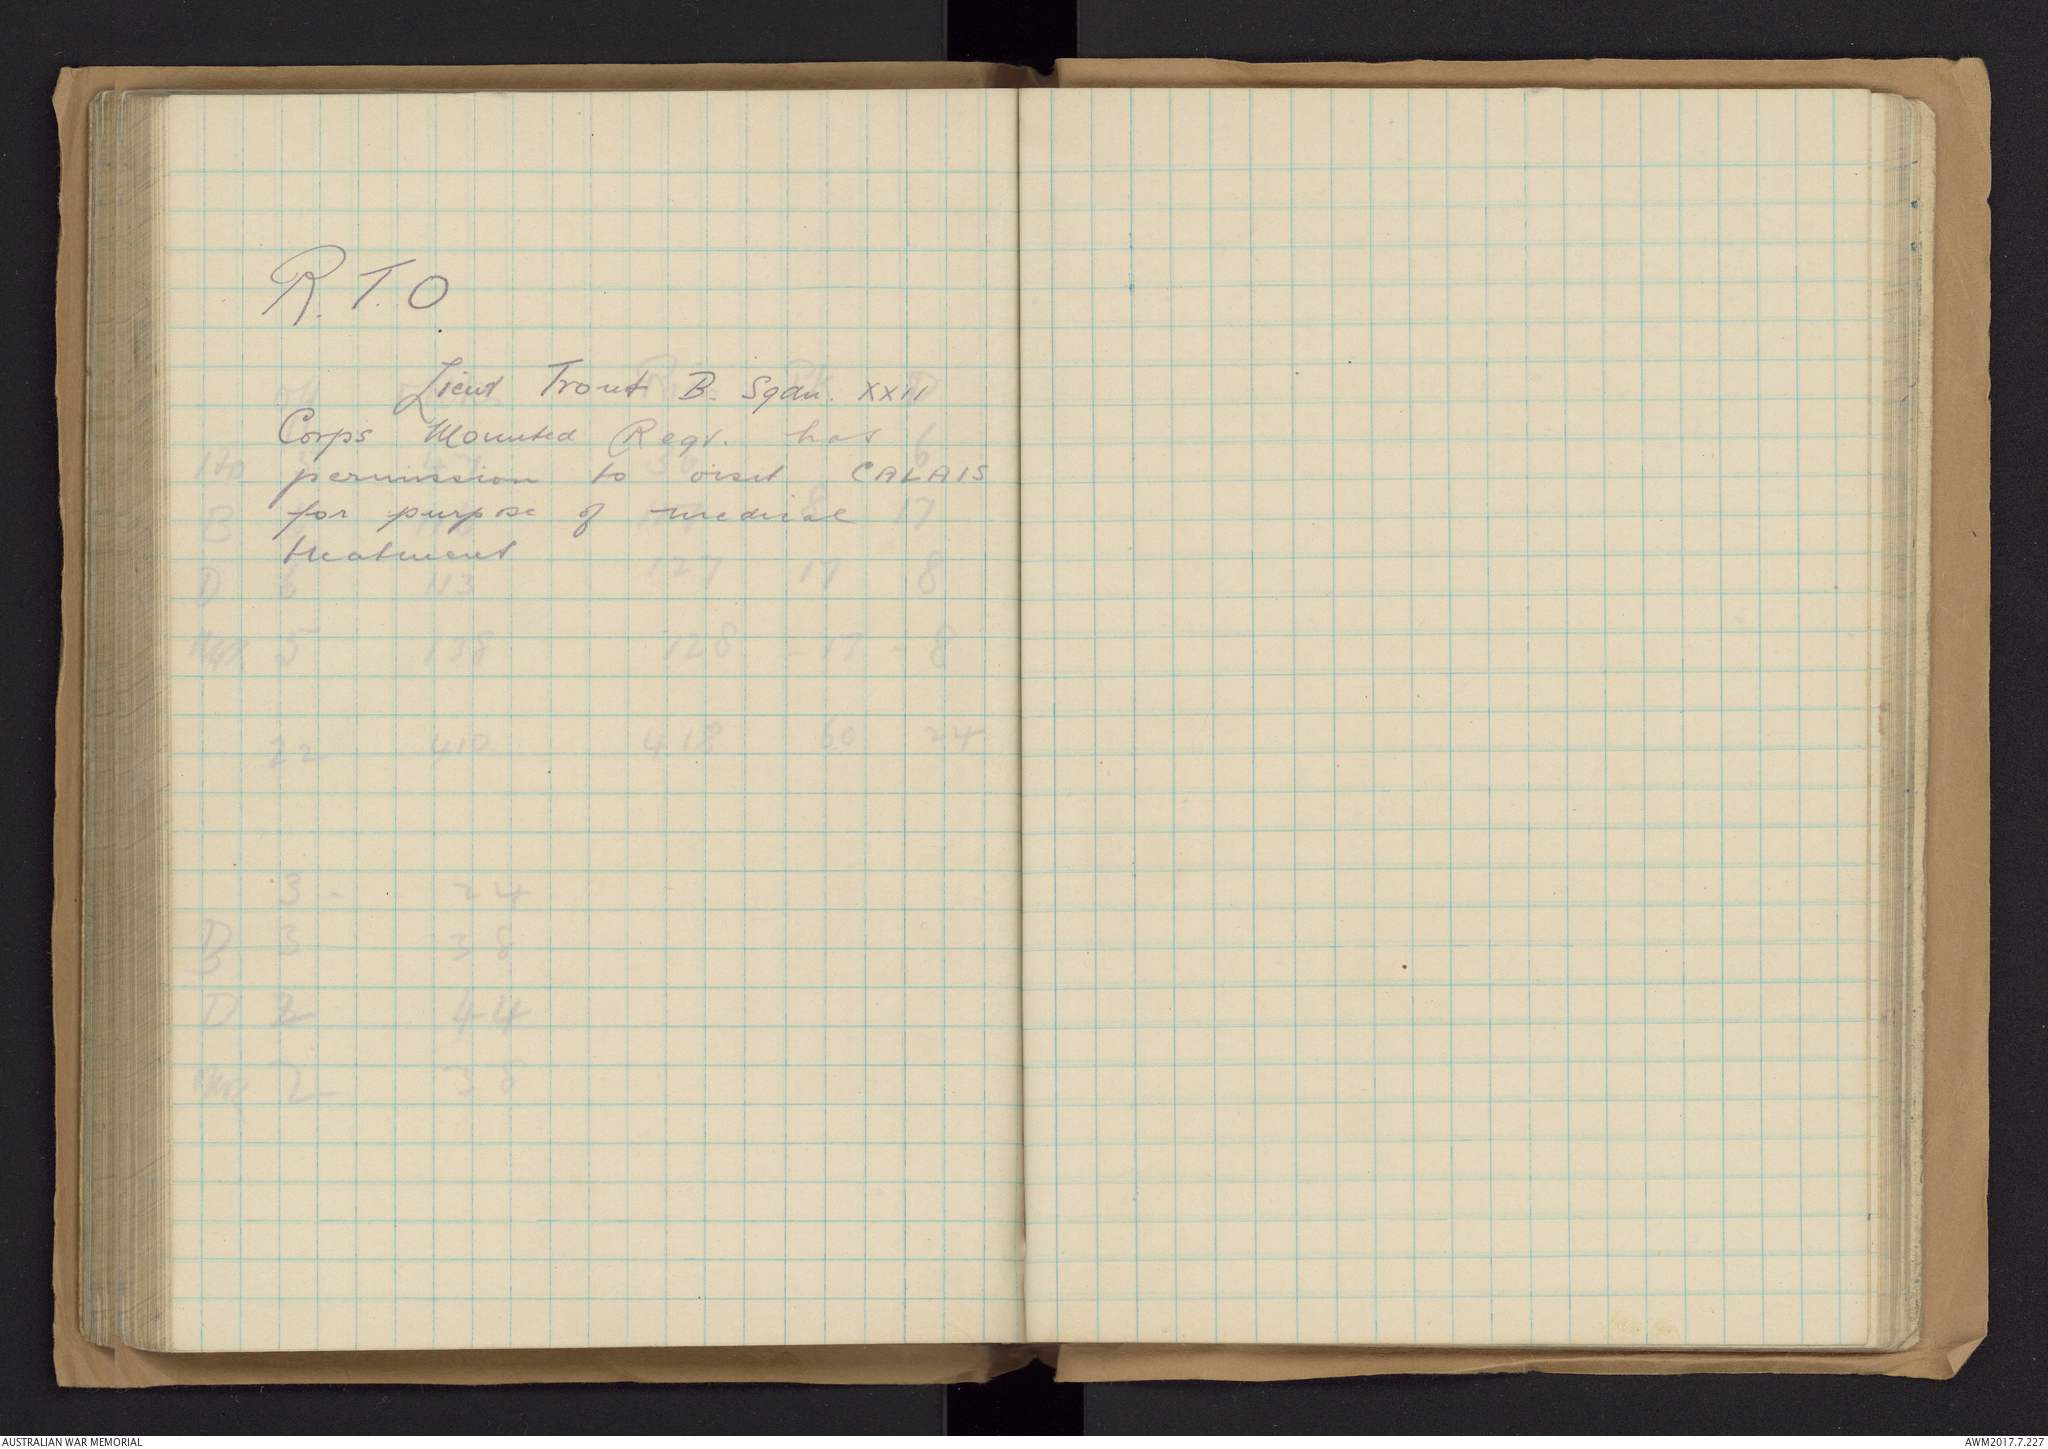 R.T.O.
Lieut Trout B. Sqdn. XXII
Corps Mounted Regt. has
permission to visit CALAIS
for purpose of medical
treatment
B 17
D 6 113 127 17 8
5 138 128 - 17 - 8
22 410 418 60 24
3 - 24
B 3 38
D 2 44
2 38
AUSTRALIAN WAR MEMORIAL
AWM2017.7.227